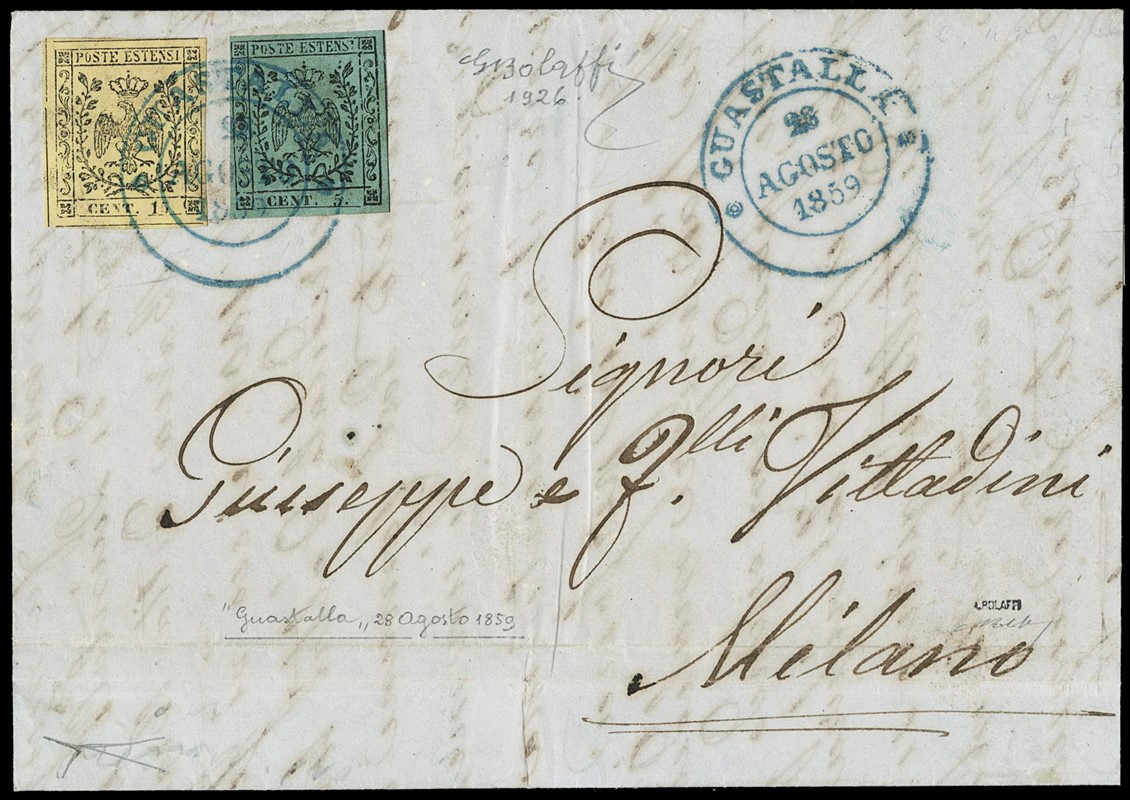 POSTE ESTENSI
CENT. 15.
POSTE ESTENSI
CENT. 5.
GBolaffi
1926.
GUASTALLA
28
AGOSTO
1859
Signori
Giuseppe e F.lli Vittadini
Milano
"Guastalla„ 28 Agosto 1859
A.BOLAFFI